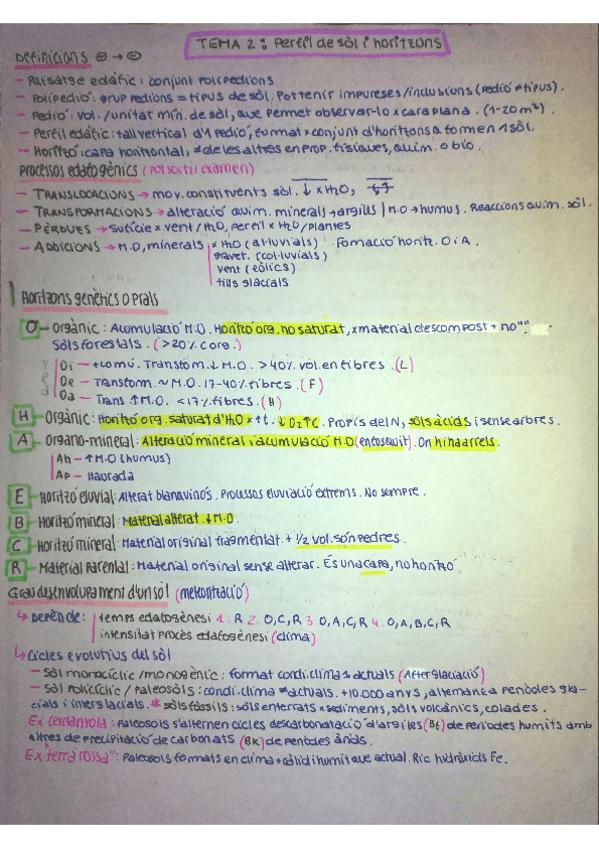 TEMA 2: Perfil de sòl i horitzons
Definicions ⊕ → ⊖
- Paisatge edàfic: conjunt polipedions
- Polipedió: grup pedions = tipus de sòl. Pot tenir impureses/inclusions (pedió ≠ tipus).
- Pedió: vol./unitat mín. de sòl, que permet observar-lo x cara plana. (1-20m²).
- Perfil edàfic: tall vertical d'1 pedió, format x conjunt d'horitzons q formen 1 sòl.
- Horitzó: capa horitzontal, ≠ de les altres en prop. físiques, quím. o bio.
Processos edafogènics (Pot sortir examen)
- TRANSLOCACIONS → mov. constituents sòl. ↓ x H₂O,
- TRANSFORMACIONS → alteració quím. minerals → argiles | M.O → humus. Reaccions quím. sòl.
- PÈRDUES → Sufície x vent/H₂O, perfil x H₂O/plantes
- ADDICIONS → M.O, minerals x H₂O (al·luvials). Fomació horitz. O i A.
gravet. (col·luvials)
vent (eòlics)
tills glacials
Horitzons genètics o prals
O - Orgànic: Acumulació M.O. Horitzó org. no saturat, x material descompost + no "".
Sòls forestals. (>20% C org.)
Oi - + comú. Transfom. ↓ M.O. > 40% vol. en fibres. (L)
Oe - Transfom. ~ M.O. 17-40% fibres. (F)
Oa - Trans ↑ M.O. <17% fibres. (H)
H - Orgànic: Horitzó org. saturat d'H₂O x ↑ t. ↓ O₂ ↑ C. Propis del N, sòls àcids i sense arbres.
A - Organo-mineral: Alteració mineral i acumulació M.O (enfosquit). On hi ha arrels.
Ah - ↑ M.O (humus)
Ap - llaurada
E - Horitzó eluvial: Alterat blanavinós. Processos eluviació extrems. No sempre.
B - Horitzó mineral: Material alterat ↓ M.O.
C - Horitzó mineral: Material original fragmentat. + 1/2 vol. són pedres.
R - Material Parental: Material original sense alterar. És una capa, no horitzó.
Grau desenvolupament d'un sòl (meteorització)
↳ Depèn de: temps edafogènesi 1. R 2. O, C, R 3. O, A, C, R 4. O, A, B, C, R
intensitat procés edafogènesi (clima)
↳ Cicles evolutius del sòl
- Sòl monocíclic/monogènic: format condi. clima = actuals (After glaciació)
- Sòl policíclic / Paleosòls: condi. clima ≠ actuals. +10.000 anys, alternança períodes gla-
cials i interglacials. * sòls fòssils: sòls enterrats x sediments, sòls volcànics, colades.
Ex Cerdanyola: Paleosols s'alternen cicles descarbonatació d'argiles (Bt) de períodes humits amb
altres de precipitació de carbonats (Bk) de períodes àrids.
Ex "terra rossa": Paleosols formats en clima + càlid i humit que actual. Ric hidròxids Fe.